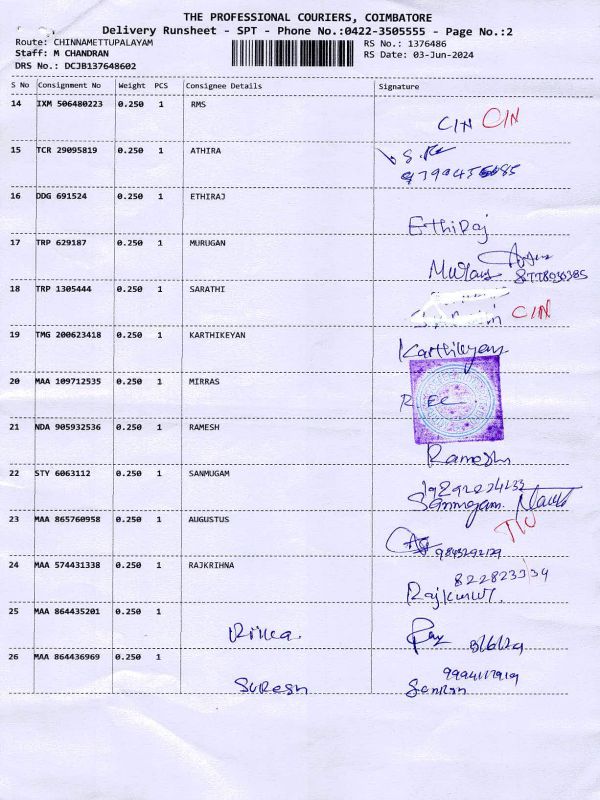 THE PROFESSIONAL COURIERS, COIMBATORE
Delivery Runsheet - SPT - Phone No.:0422-3505555 - Page No.:2
Route: CHINNAMETTUPALAYAM RS No.: 1376486
Staff: M CHANDRAN RS Date: 03-Jun-2024
DRS No.: DCJB137648602
S No Consignment No Weight PCS Consignee Details Signature
14 IXM 506480223 0.250 1 RMS
C/N C/N
15 TCR 29095819 0.250 1 ATHIRA
16 DDG 691524 0.250 1 ETHIRAJ
EthiRaj
17 TRP 629187 0.250 1 MURUGAN
18 TRP 1305444 0.250 1 SARATHI
C/N
19 TMG 200623418 0.250 1 KARTHIKEYAN
Karthikeyan
20 MAA 109712535 0.250 1 MIRRAS
REC
21 NDA 905932536 0.250 1 RAMESH
Ramesh
22 STY 6063112 0.250 1 SANMUGAM
Sanmugam
23 MAA 865760958 0.250 1 AUGUSTUS
24 MAA 574431338 0.250 1 RAJKRIHNA
25 MAA 864435201 0.250 1
26 MAA 864436969 0.250 1
SURESH